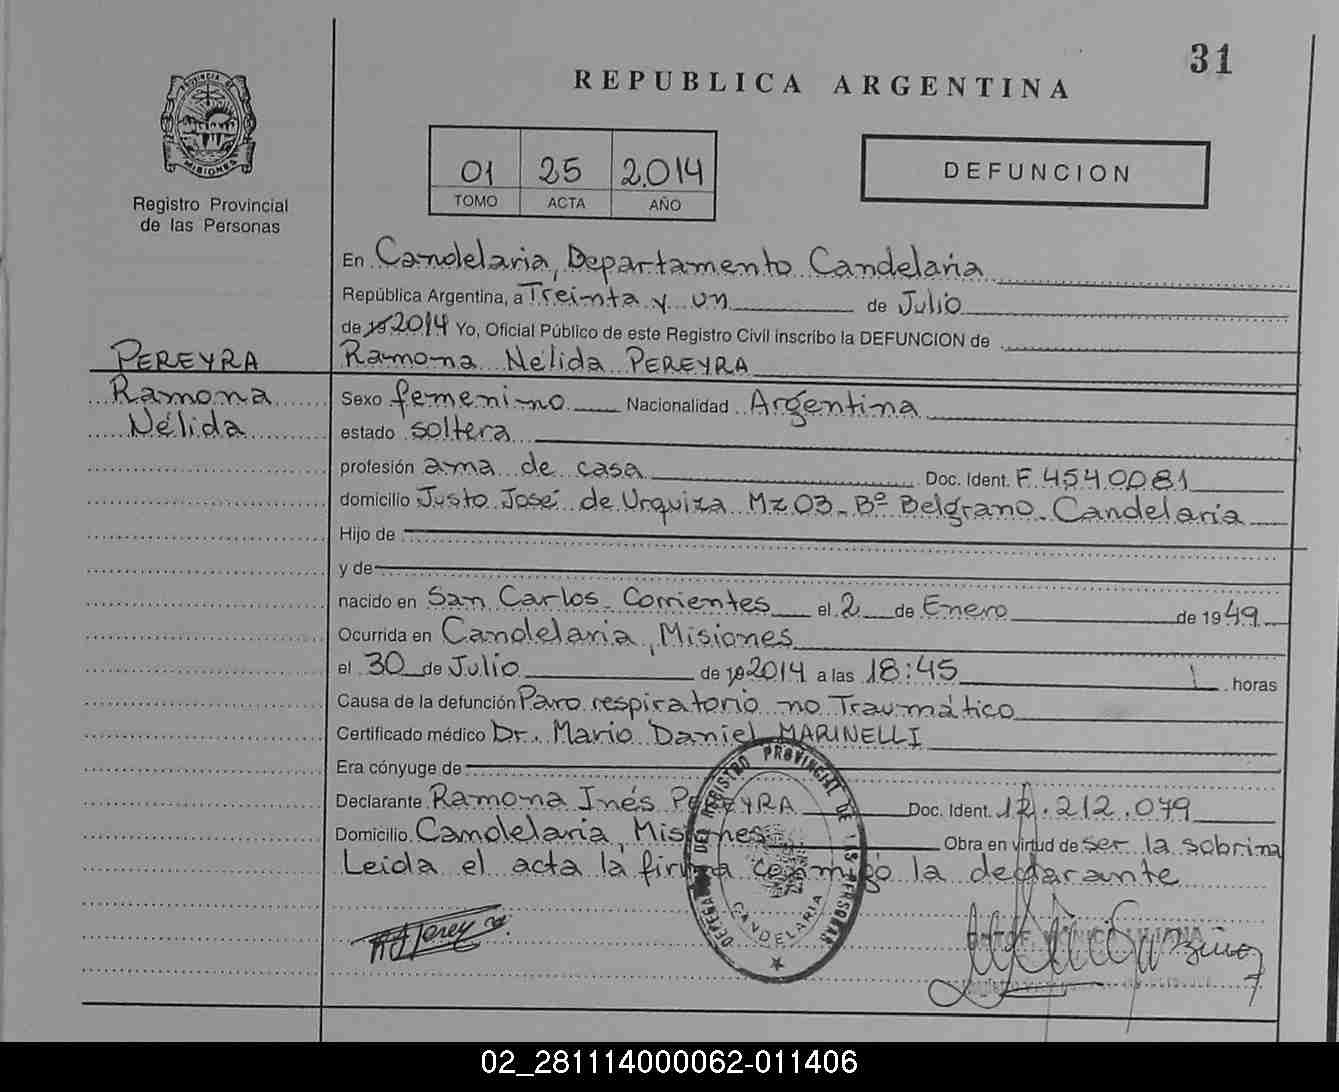 31
REPUBLICA ARGENTINA
PROVINCIA DE
MISIONES
Registro Provincial
de las Personas
01 25 2.014
TOMO ACTA AÑO
DEFUNCION
En Candelaria, Departamento Candelaria
República Argentina, a Treinta y un de Julio
de 19 2014 Yo, Oficial Público de este Registro Civil inscribo la DEFUNCION de
PEREYRA
Ramona
Nélida
Ramona Nélida PEREYRA
Sexo femenino Nacionalidad Argentina
estado soltera
profesión ama de casa Doc. Ident. F. 4540081
domicilio Justo José de Urquiza Mz 03 - Bº Belgrano - Candelaria
Hijo de
y de
nacido en San Carlos - Corrientes el 2 de Enero de 1949
Ocurrida en Candelaria, Misiones
el 30 de Julio de 19 2014 a las 18:45 horas
Causa de la defunción Paro respiratorio no Traumático
Certificado médico Dr. Mario Daniel MARINELLI
Era cónyuge de
Declarante Ramona Inés PEREYRA Doc. Ident. 12.212.079
Domicilio Candelaria, Misiones Obra en virtud de ser la sobrina
Leída el acta la firma conmigo la declarante
DELEGACION DEL REGISTRO PROVINCIAL DE LAS PERSONAS
CANDELARIA
02_281114000062-011406